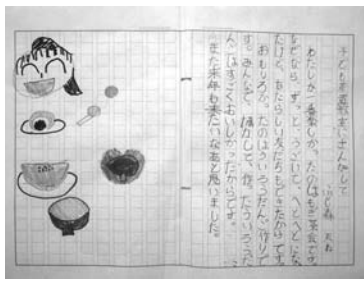 子ども茶道教室にさんかして
わたしが一番楽しかったのはもぎ茶会です。
なぜなら、ずっと、うごいて、へとへとにな
たけど、あたらしい友だちもできたからです。
おもしろかったのはういろうだん作りで
す。みんなで協力して、作ったういろうだ
んごはすごくおいしかったからです。
また来年も来たいなあと思いました。